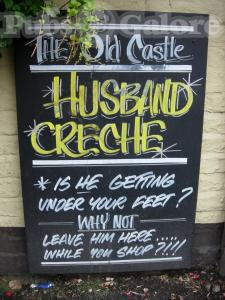 Pubs Galore
THE Old CASTLE
HUSBAND
CRECHE
* IS HE GETTING
UNDER YOUR FEET?
WHY NOT
LEAVE HIM HERE....
WHILE YOU SHOP?!!!